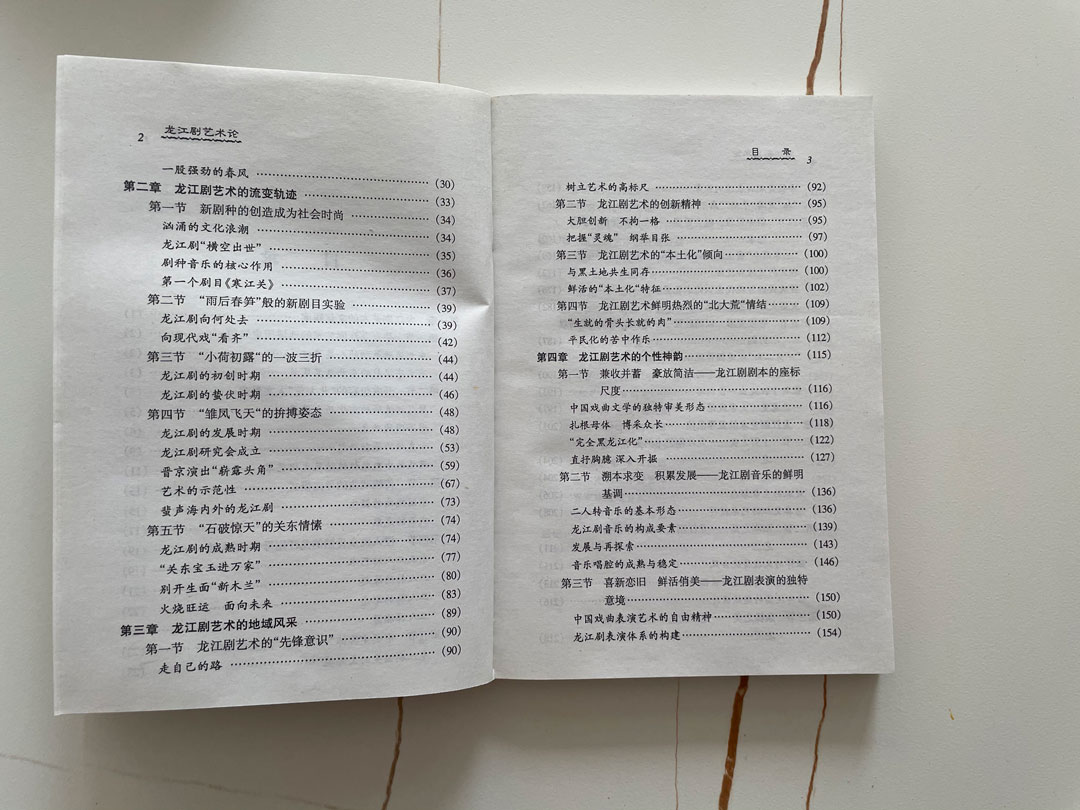 2 龙江剧艺术论
一股强劲的春风 (30)
第二章 龙江剧艺术的流变轨迹 (33)
第一节 新剧种的创造成为社会时尚 (34)
汹涌的文化浪潮 (34)
龙江剧“横空出世” (35)
剧种音乐的核心作用 (36)
第一个剧目《寒江关》 (37)
第二节 “雨后春笋”般的新剧目实验 (39)
龙江剧向何处去 (39)
向现代戏“看齐” (42)
第三节 “小荷初露“的一波三折 (44)
龙江剧的初创时期 (44)
龙江剧的蛰伏时期 (46)
第四节 “雏凤飞天“的拚搏姿态 (48)
龙江剧的发展时期 (48)
龙江剧研究会成立 (53)
晋京演出“崭露头角” (59)
艺术的示范性 (67)
蜚声海内外的龙江剧 (73)
第五节 “石破惊天”的关东情愫 (74)
龙江剧的成熟时期 (74)
“关东宝玉进万家” (77)
别开生面“新木兰” (80)
火烧旺运 面向未来 (83)
第三章 龙江剧艺术的地域风采 (89)
第一节 龙江剧艺术的“先锋意识” (90)
走自己的路 (90)
目 录 3
树立艺术的高标尺 (92)
第二节 龙江剧艺术的创新精神 (95)
大胆创新 不拘一格 (95)
把握“灵魂” 纲举目张 (97)
第三节 龙江剧艺术的“本土化”倾向 (100)
与黑土地共生同存 (100)
鲜活的“本土化“特征 (102)
第四节 龙江剧艺术鲜明热烈的“北大荒“情结 (109)
“生就的骨头长就的肉” (109)
平民化的苦中作乐 (112)
第四章 龙江剧艺术的个性神韵 (115)
第一节 兼收并蓄 豪放简洁——龙江剧剧本的座标
尺度 (116)
中国戏曲文学的独特审美形态 (116)
扎根母体 博采众长 (118)
“完全黑龙江化” (122)
直抒胸臆 深入开掘 (127)
第二节 溯本求变 积累发展——龙江剧音乐的鲜明
基调 (136)
二人转音乐的基本形态 (136)
龙江剧音乐的构成要素 (139)
发展与再探索 (143)
音乐唱腔的成熟与稳定 (146)
第三节 喜新恋旧 鲜活俏美——龙江剧表演的独特
意境 (150)
中国戏曲表演艺术的自由精神 (150)
龙江剧表演体系的构建 (154)